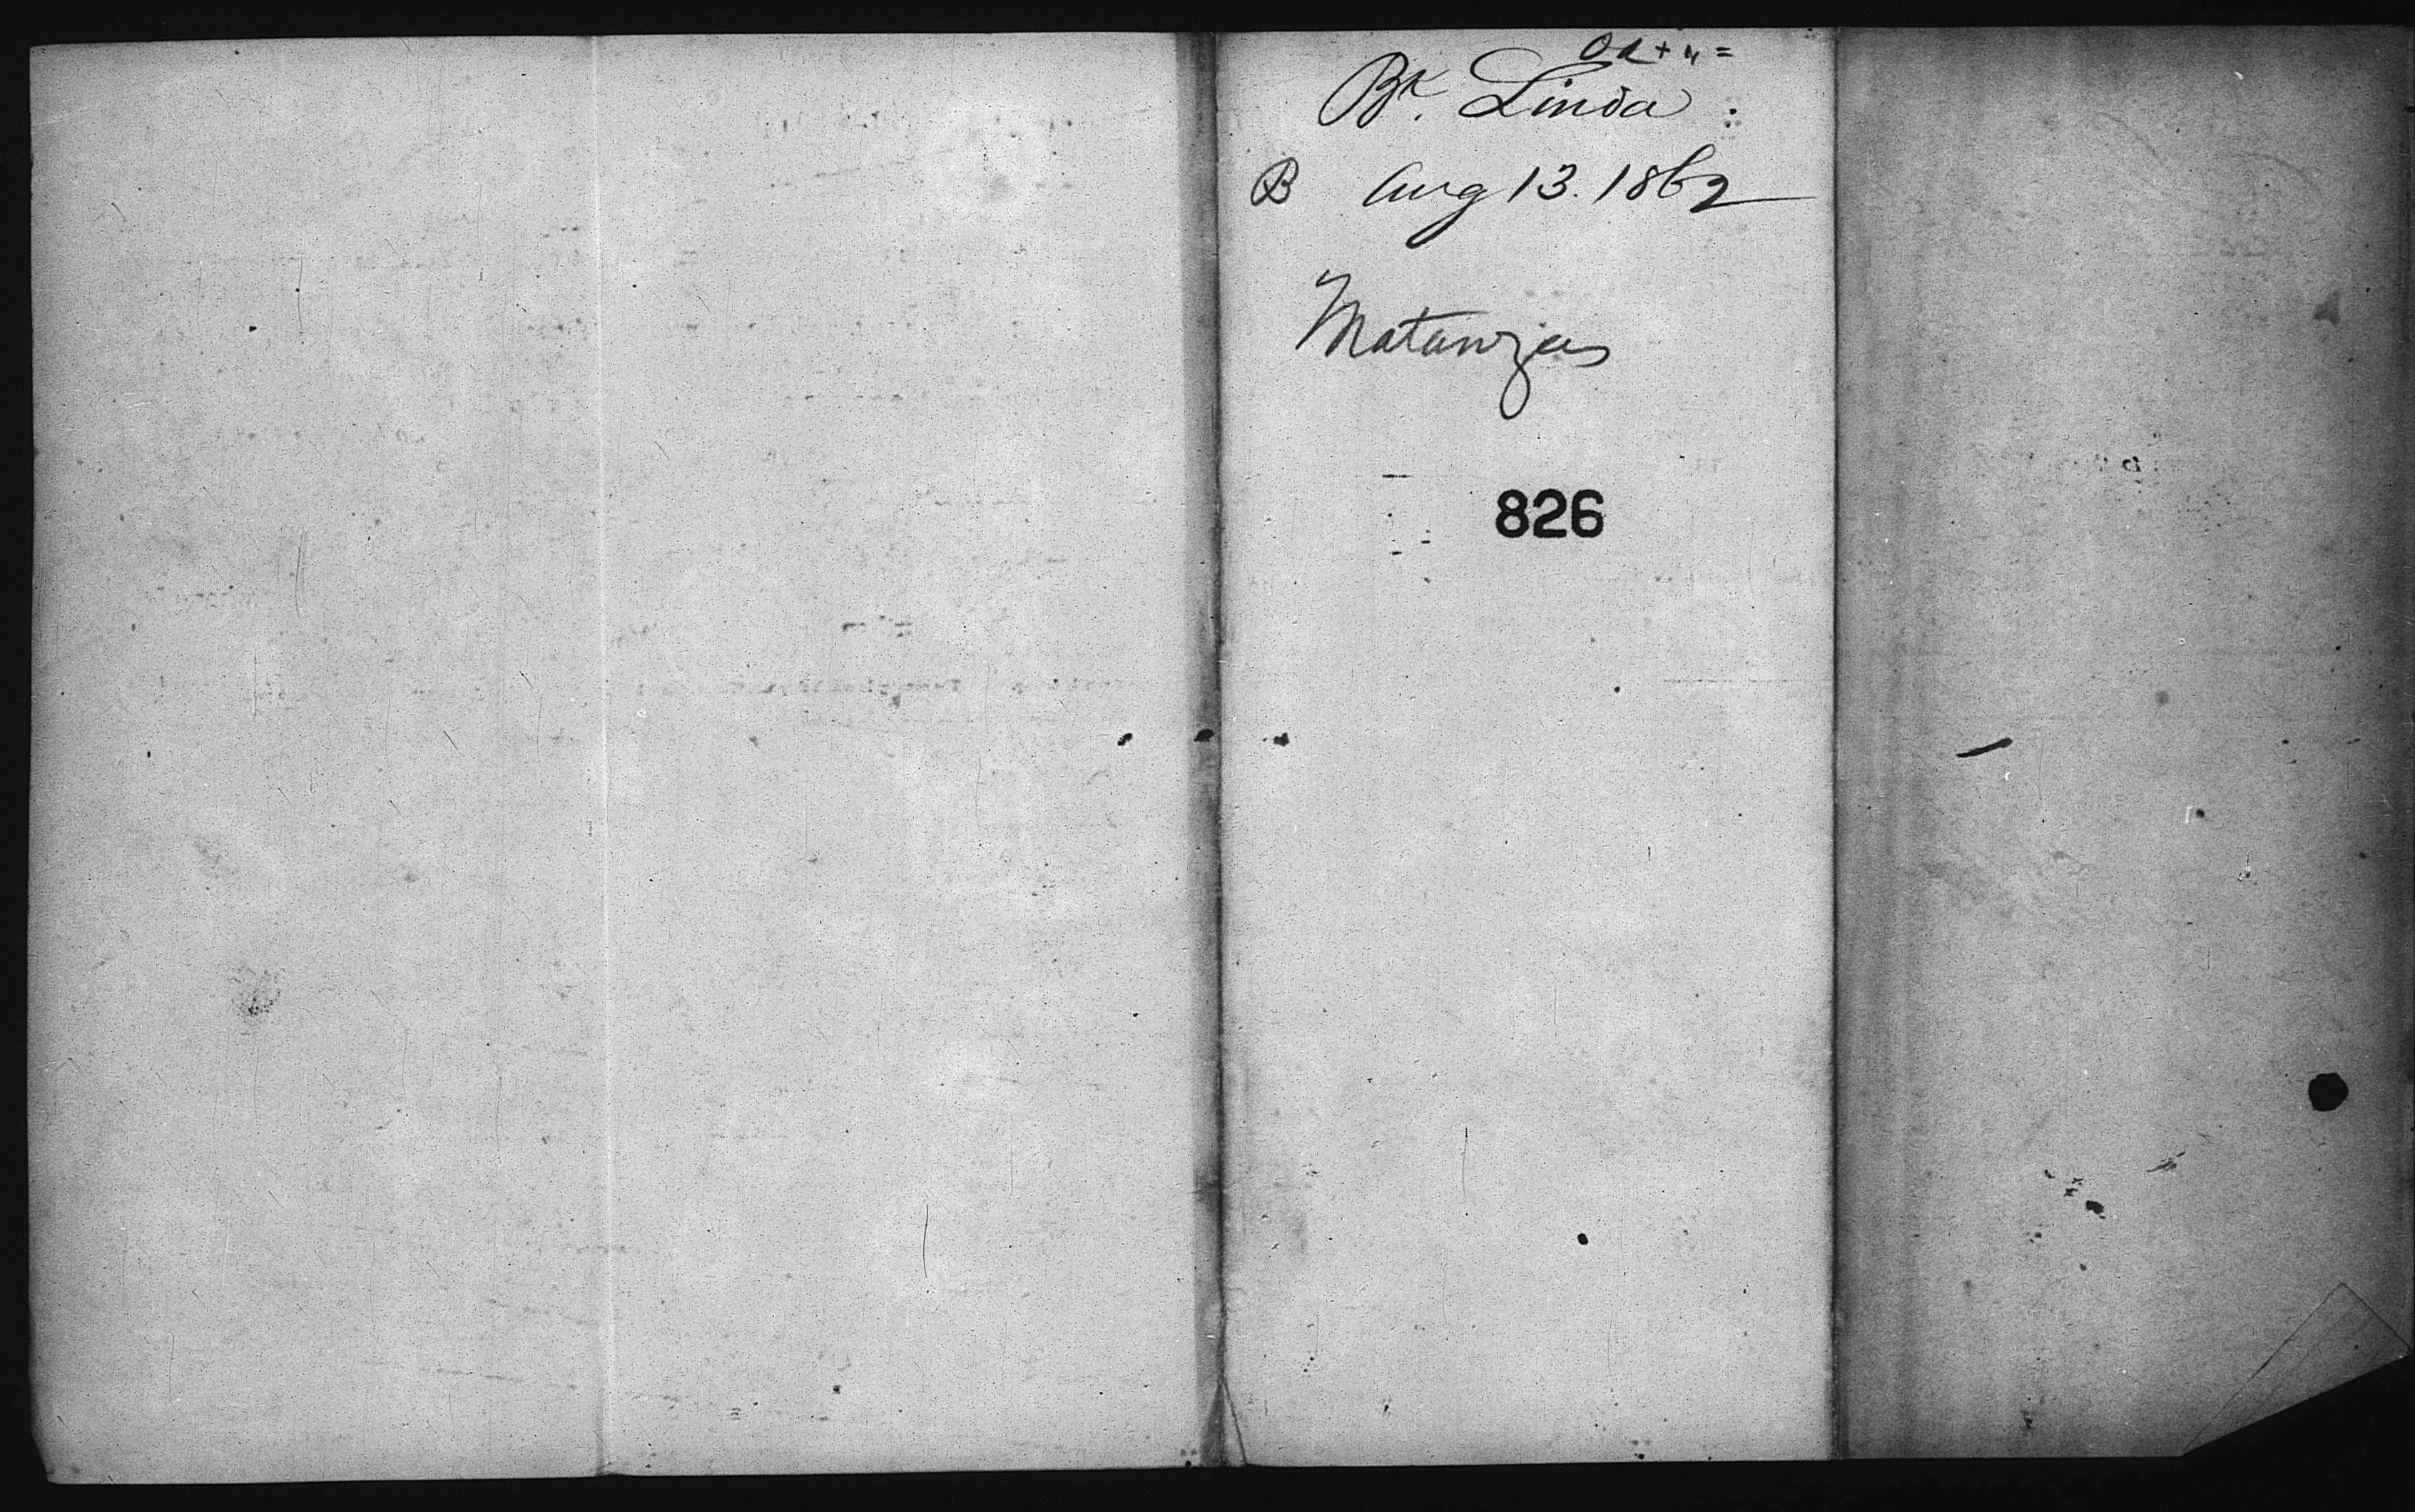 Bk. Linda
B Aug 13. 1862
Matanzas
826